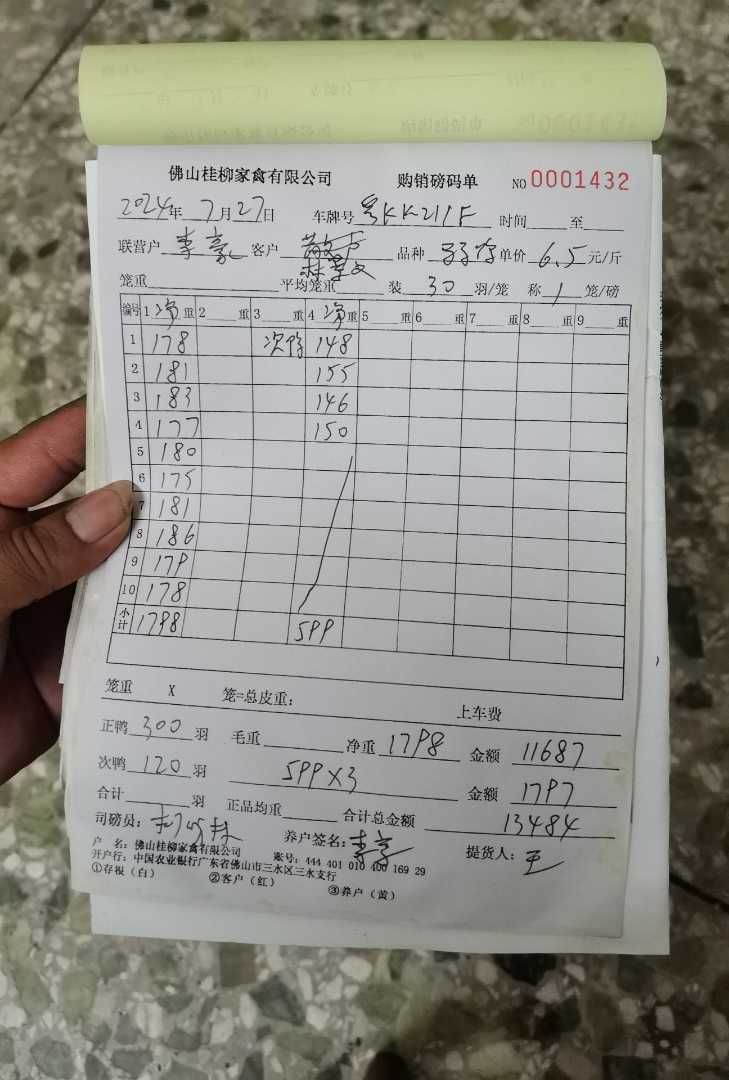 佛山桂柳家禽有限公司 购销磅码单 NO 0001432
2024年 7月27日 车牌号 粤KK211F 时间 至
联营户 李豪 客户 散户 品种 单价 6.5 元/斤
笼重 平均笼重 装 30 羽/笼 称 1 笼/磅
编号 1 净重 2 重 3 重 4 净重 5 重 6 重 7 重 8 重 9 重
1 178 次鸭 148
2 181 155
3 183 146
4 177 150
5 180
6 175
7 181
8 186
9 179
10 178
小计 1798 599
笼重 X 笼=总皮重： 上车费
正鸭 300 羽 毛重 净重 1798 金额 11687
次鸭 120 羽 599×3 金额 1797
合计 羽 正品均重 合计总金额 13484
司磅员： 养户签名：李豪 提货人：王
户 名：佛山桂柳家禽有限公司 账号：444 401 010 400 169 29
开户行：中国农业银行广东省佛山市三水区三水支行
①存根（白） ②客户（红） ③养户（黄）